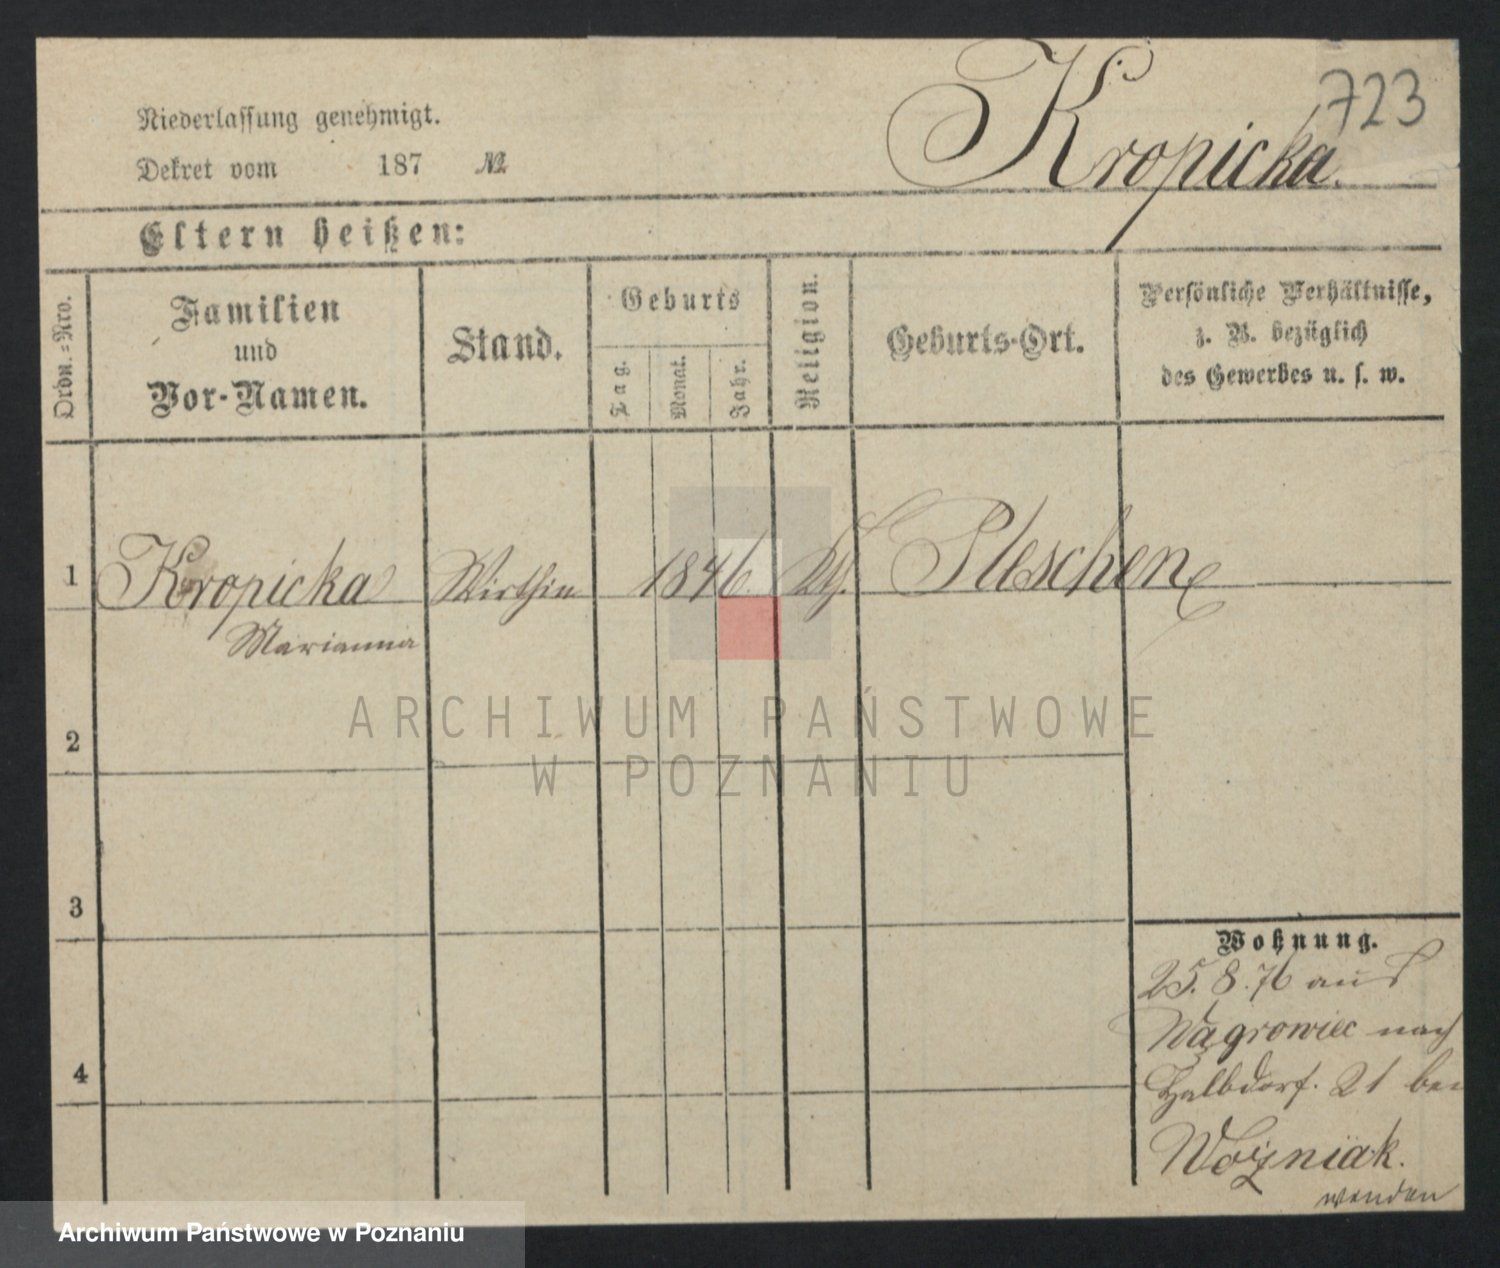 723
Kropicka.
Niederlassung genehmigt.
Dekret vom 187 №
Eltern heißen:
Ordn.=Nro.
Familien
und
Vor-Namen.
Stand.
Geburts
Tag.
Monat.
Jahr.
Religion.
Geburts-Ort.
Persönliche Verhältnisse,
z. B. bezüglich
des Gewerbes u. s. w.
1 Kropicka Wirthin 1846. Kth. Pleschen
Marianna
2
3
4
Wohnung.
25.8.76 aus
Wągrowiec nach
Halbdorf. 21 bei
Woźniak.
wenden
ARCHIWUM PAŃSTWOWE
W POZNANIU
Archiwum Państwowe w Poznaniu